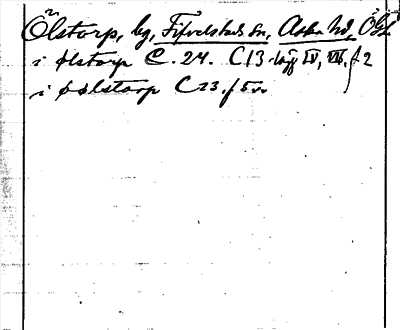 Ölstorp, by, Fivelstad sn, Aska hd, Ögl
i ølstorp C. 24. C 13 läg IV, VIII. f 2
i øølstorp C 23. f 5 v.